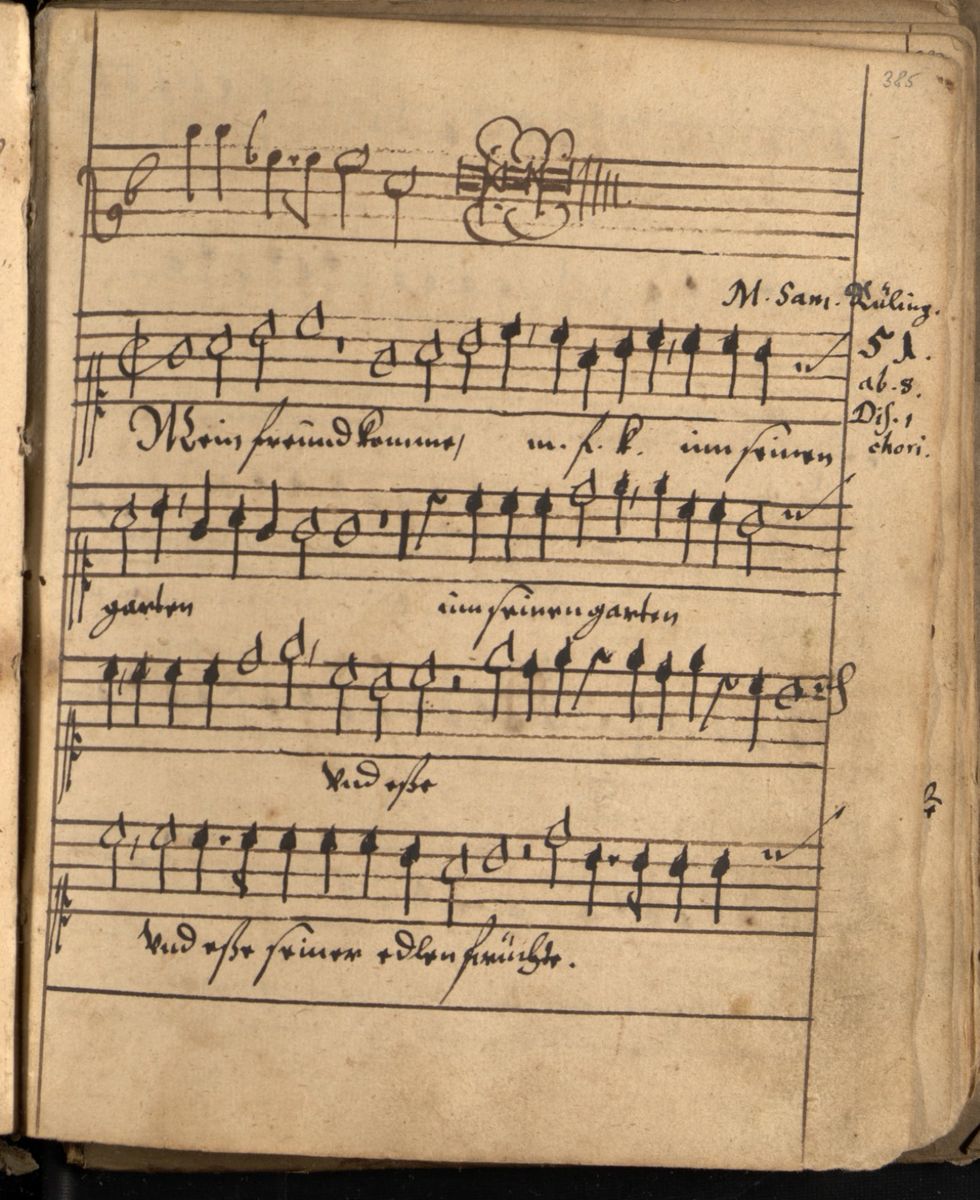 385
M. Sam. Rüling.
51.
ab. 8.
Dis. 1
chori.
Mein freund komme, m. f. k. inn seinen
garten inn seinen garten
Vnd eße
Vnd eße seiner edlen früchte.